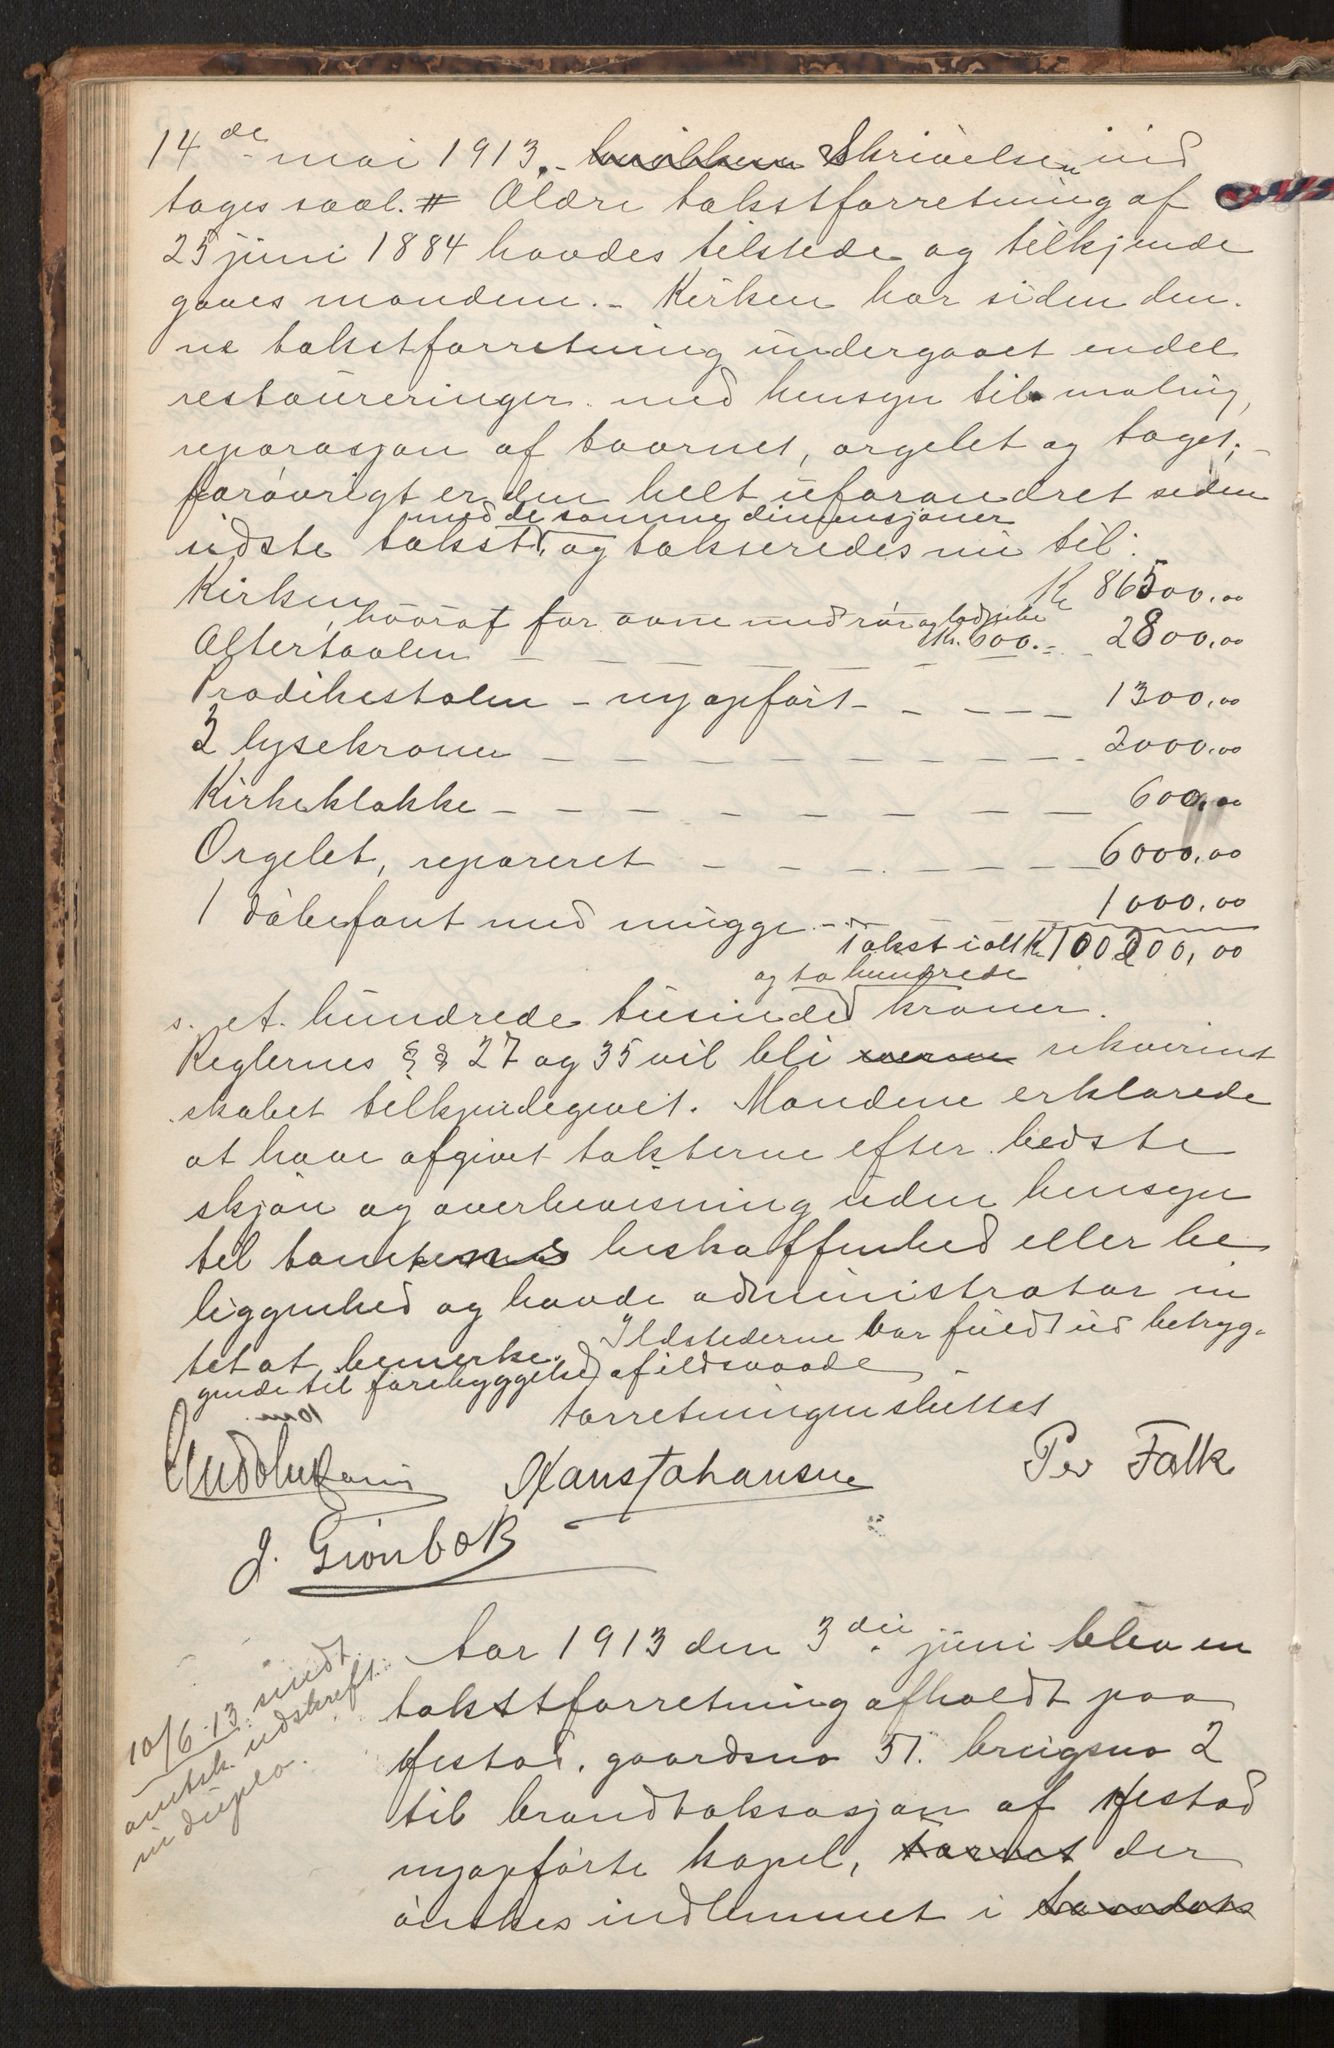 14de mai 1913. ~~hvilken~~ Skrivelsen ind
tages saal. # Ældre takstforretning af
25 juni 1884 havdes tilstede og tilkjende
gaves mændene. - Kirken har siden den-
ne takstforretning undergaaet endel
restaureringer med hensyn til maling,
reparasjon af taarnet, orgelet og taget; -
forøvrigt er den helt uforandret siden
med de samme dimensjoner
sidste takst, og takseredes nu til:
Kirken Kr 86500.00
hvoraf for ovne med rør og
Kr. 600.-
Altertavlen 2800.00
Prædikestolen - ny opført - 1300.00
3 lysekroner 2000.00
Kirkeklokke 600.00
Orgelet, repareret 6000.00
1 døbefont med mugge 1000.00
Takst ialt Kr 100200.00
og to hundrede
s. et hundrede tusinde kroner.
Reglernes §§ 27 og 35 vil bli rekvirent
skabet tilkjendegivet. Mændene erklærede
at have afgivet taksterne efter bedste
skjøn og overbevisning uden hensyn
til tomtens beskaffenhed eller be
liggenhed og havde administrator in
tet at bemerke. Ildstederne var fuldt ud betryg-
gende til forebyggelse af ildsvaade
Forretningen sluttet
Hans Johansen Per Falk
J. Grønbæk
Aar 1913 den 3die juni blev en
takstforretning afholdt paa
Øfstad, gaardsno 51. bruigsno 2
til brandtaksasjon af Øfstad
nyopførte kapel, der
ønskes indlemmet i
10/6-13 sendt
amtsk. udskrift
in duplo.